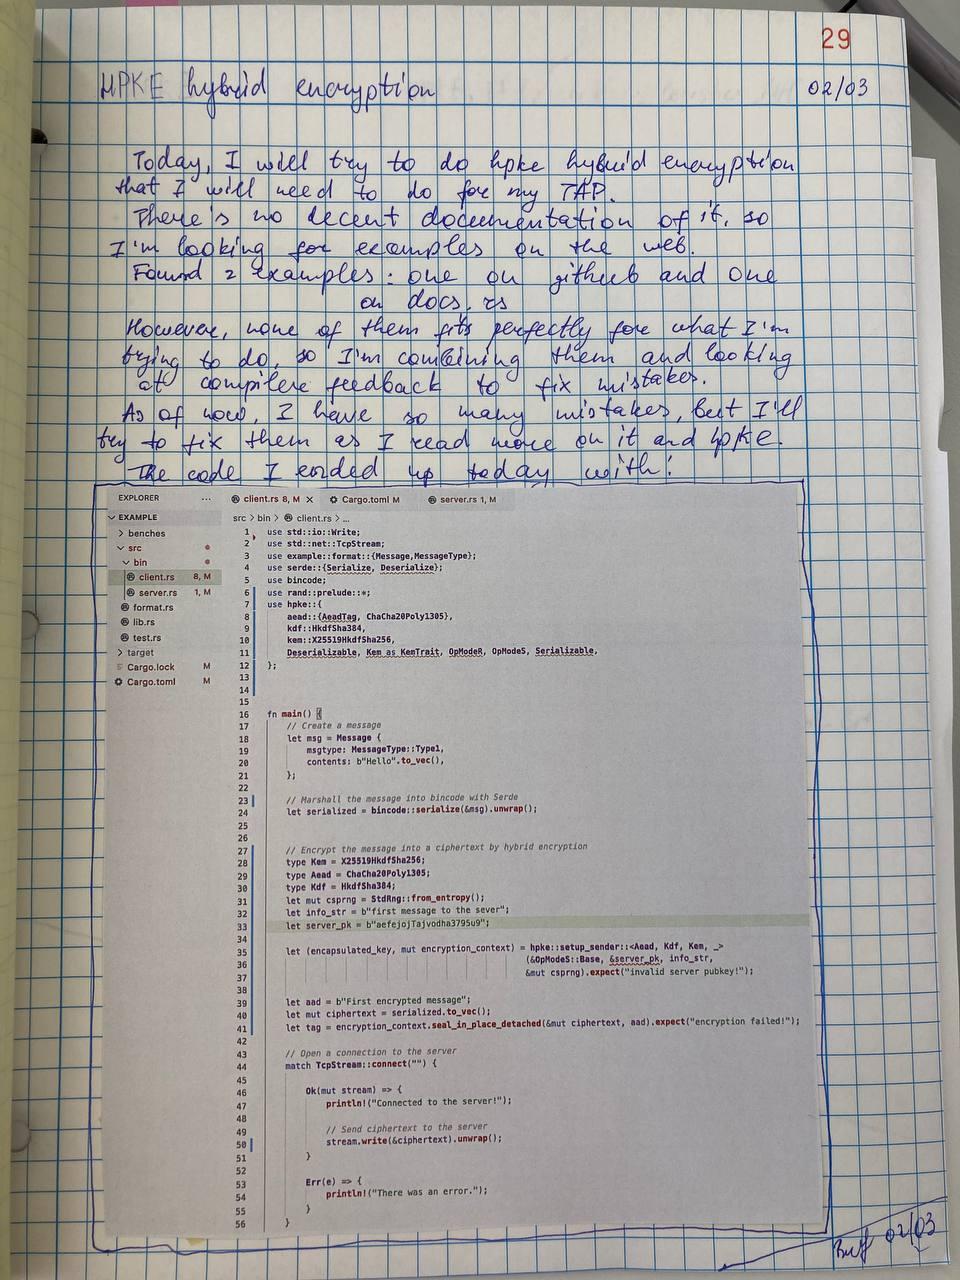 29
HPKE hybrid encryption 02/03
Today, I will try to do hpke hybrid encryption
that I will need to do for my TAP.
There's no decent documentation of it, so
I'm looking for examples on the web.
Found 2 examples: one on github and one
on docs.rs
However, none of them fits perfectly for what I'm
trying to do, so I'm combining them and looking
at compiler feedback to fix mistakes.
As of now, I have so many mistakes, but I'll
try to fix them as I read more on it and hpke.
The code I ended up today with:
EXPLORER ... client.rs 8, M × Cargo.toml M server.rs 1, M
EXAMPLE src > bin > client.rs > ...
benches
src
bin
client.rs 8, M
server.rs 1, M
format.rs
lib.rs
test.rs
target
Cargo.lock M
Cargo.toml M
1 use std::io::Write;
2 use std::net::TcpStream;
3 use example::format::{Message,MessageType};
4 use serde::{Serialize, Deserialize};
5 use bincode;
6 use rand::prelude::*;
7 use hpke::{
8 aead::{AeadTag, ChaCha20Poly1305},
9 kdf::HkdfSha384,
10 kem::X25519HkdfSha256,
11 Deserializable, Kem as KemTrait, OpModeR, OpModeS, Serializable,
12 };
13
14
15
16 fn main() {
17 // Create a message
18 let msg = Message {
19 msgtype: MessageType::Type1,
20 contents: b"Hello".to_vec(),
21 };
22
23 // Marshall the message into bincode with Serde
24 let serialized = bincode::serialize(&msg).unwrap();
25
26
27 // Encrypt the message into a ciphertext by hybrid encryption
28 type Kem = X25519HkdfSha256;
29 type Aead = ChaCha20Poly1305;
30 type Kdf = HkdfSha384;
31 let mut csprng = StdRng::from_entropy();
32 let info_str = b"first message to the sever";
33 let server_pk = b"aefejojTajvodha3795u9";
34
35 let (encapsulated_key, mut encryption_context) = hpke::setup_sender::<Aead, Kdf, Kem, _>
36 (&OpModeS::Base, &server_pk, info_str,
37 &mut csprng).expect("invalid server pubkey!");
38
39 let aad = b"First encrypted message";
40 let mut ciphertext = serialized.to_vec();
41 let tag = encryption_context.seal_in_place_detached(&mut ciphertext, aad).expect("encryption failed!");
42
43 // Open a connection to the server
44 match TcpStream::connect("") {
45
46 Ok(mut stream) => {
47 println!("Connected to the server!");
48
49 // Send ciphertext to the server
50 stream.write(&ciphertext).unwrap();
51 }
52
53 Err(e) => {
54 println!("There was an error.");
55 }
56 }
02/03